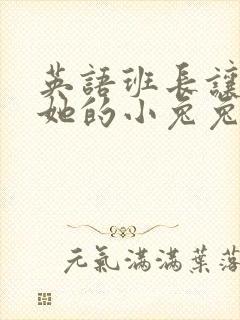 英語班長讓
她的小兔兔
元氣滿滿葉落